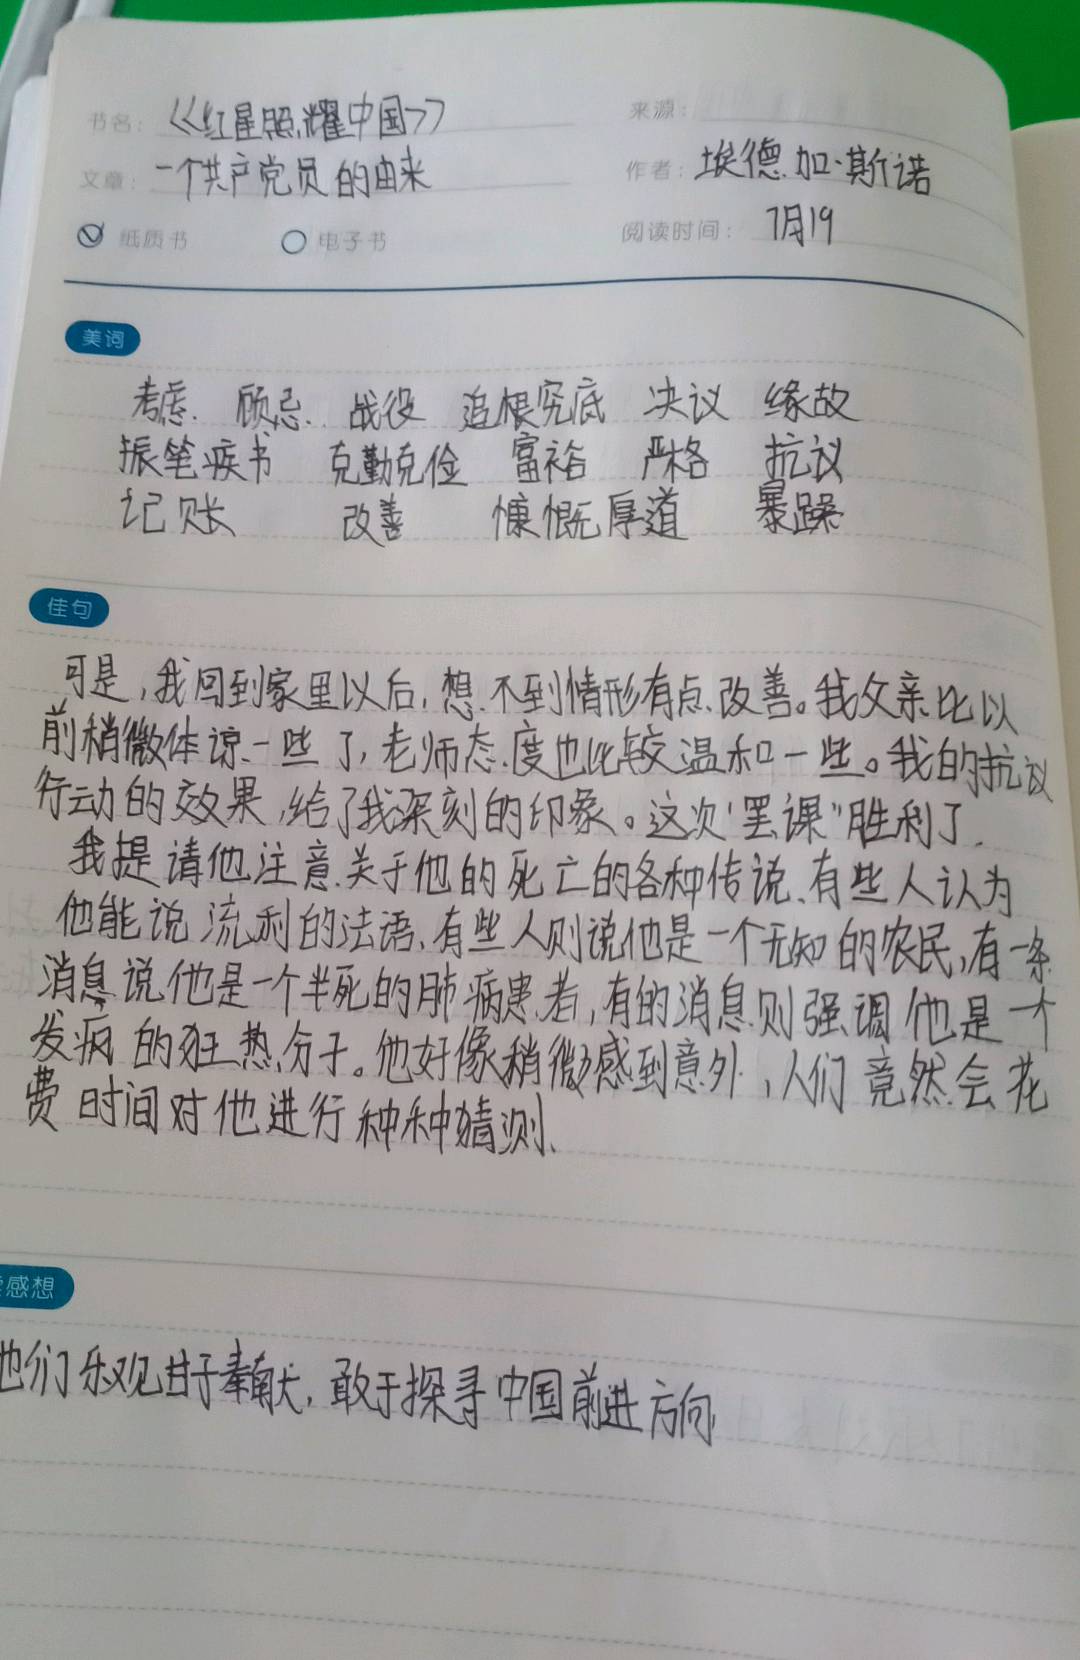 书名： 《红星照耀中国》 来源：
文章： 一个共产党员的由来 作者： 埃德加·斯诺
纸质书 电子书 阅读时间： 7月19
美词
考虑. 顾忌. 战役 追根究底 决议 缘故
振笔疾书 克勤克俭 富裕 严格 抗议
记账 改善 慷慨厚道 暴躁
佳句
可是，我回到家里以后，想不到情形有点改善。我父亲比以
前稍微体谅一些了，老师态度也比较温和一些。我的抗议
行动的效果，给了我深刻的印象。这次“罢课”胜利了.
我提请他注意关于他的死亡的各种传说、有些人认为
他能说流利的法语、有些人则说他是一个无知的农民，有一条
消息说他是一个半死的肺病患者，有的消息则强调他是一个
发疯的狂热分子。他好像稍微感到意外，人们竟然会花
费时间对他进行种种猜测、
感想
他们乐观甘于奉献，敢于探寻中国前进方向